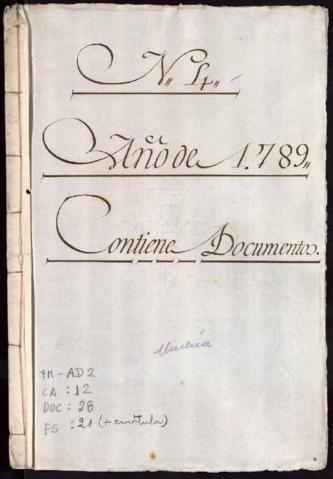 N,, 4,,
Año de 1.789,,
Contiene Documentos.
Murcia
TM-AD2
CA : 12
DOC : 28
FS : 21 (+ carátula)